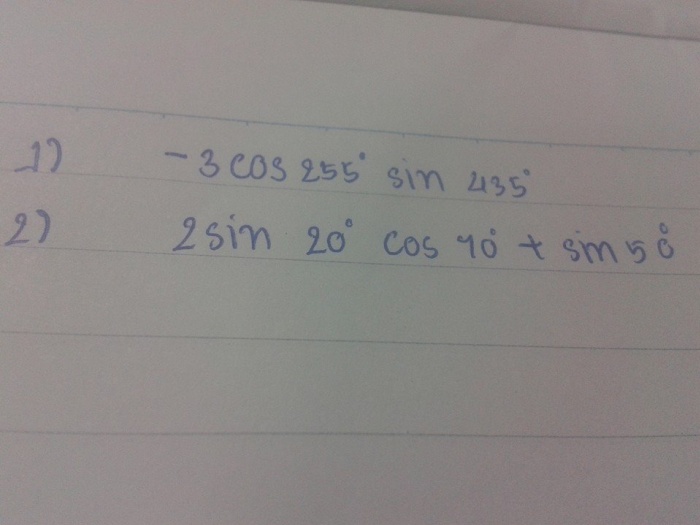 1) -3 cos 255° sin 435°
2) 2 sin 20° cos 70° + sin 50°